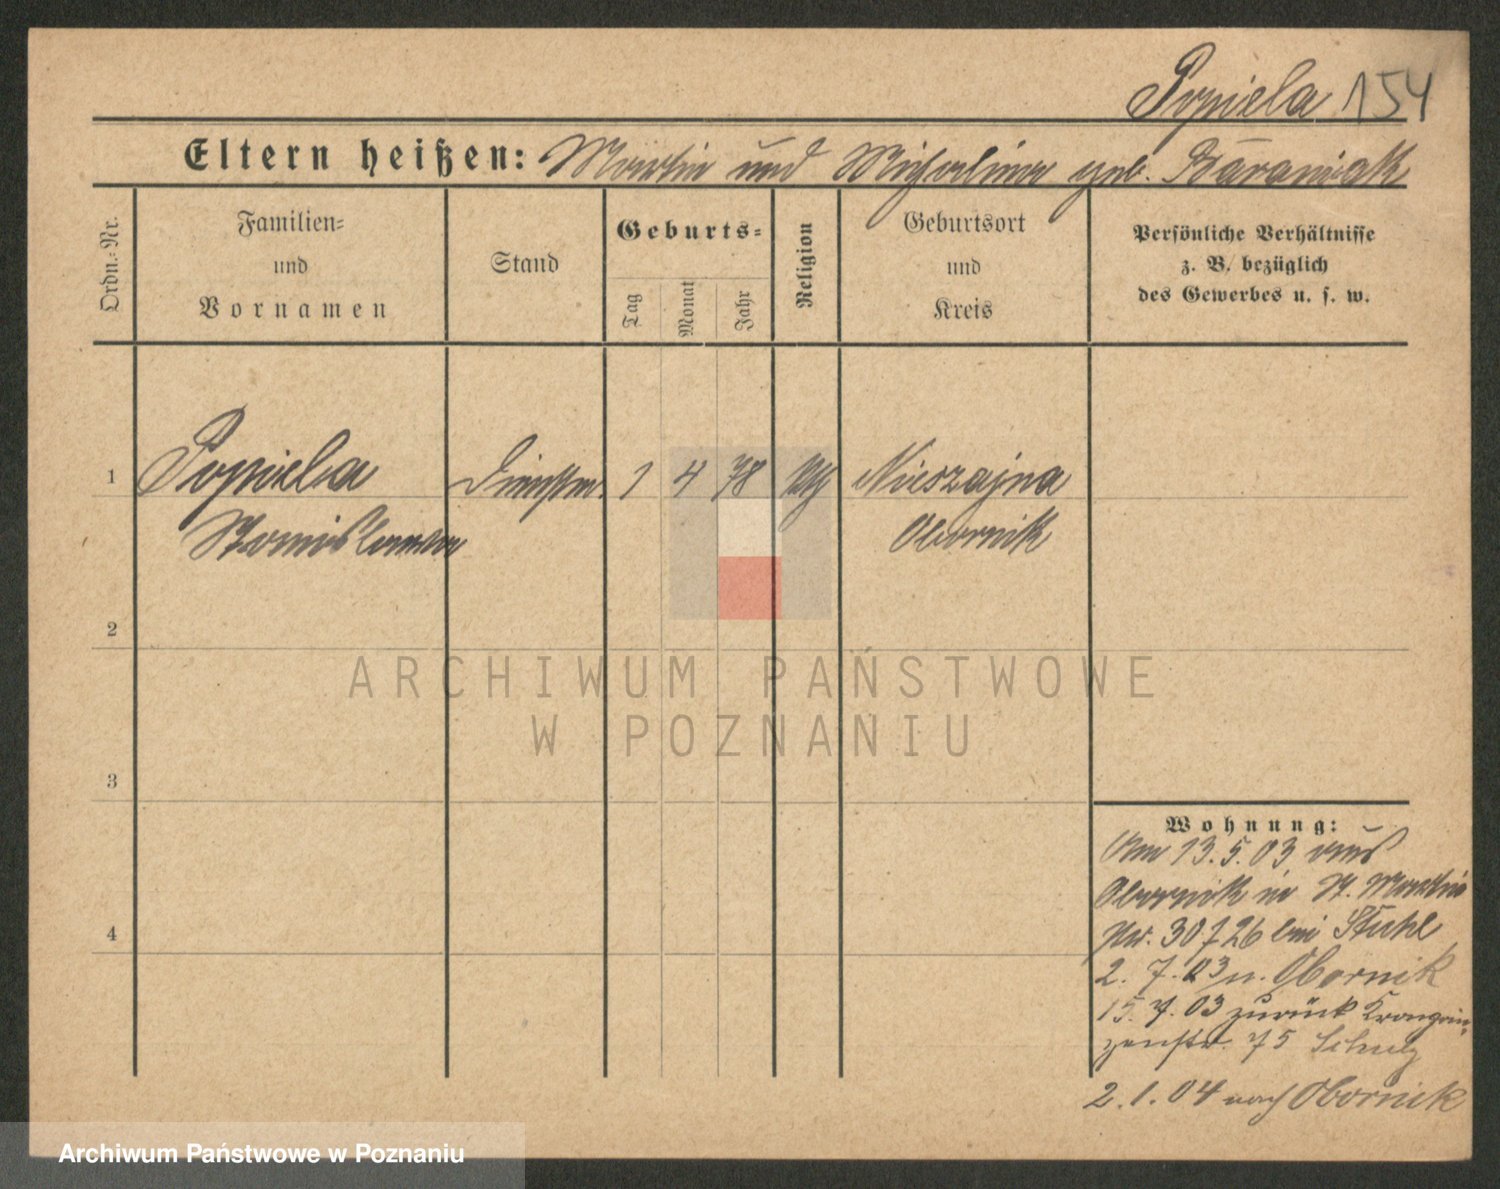 Popiela 154
Eltern heißen: Martin und Michalina geb. Baraniak
Ordn.-Nr.
Familien-
und
Vornamen
Stand
Geburts-
Tag
Monat
Jahr
Religion
Geburtsort
und
Kreis
Persönliche Verhältnisse
z. B. bezüglich
des Gewerbes u. s. w.
1 Popiela Dienstm. 1 4 78 Nieszajna
Stanislawa Obornik
2
3
4
Wohnung:
Am 13.5.03 aus
Obornik in St. Martin
Nr. 30 z 26 bei Stuhl
2. 7. 03 n. Obornik
15. 7. 03 zurück Kronprin-
zenstr. 75 Schulz
2. 1. 04 nach Obornik
ARCHIWUM PAŃSTWOWE
W POZNANIU
Archiwum Państwowe w Poznaniu